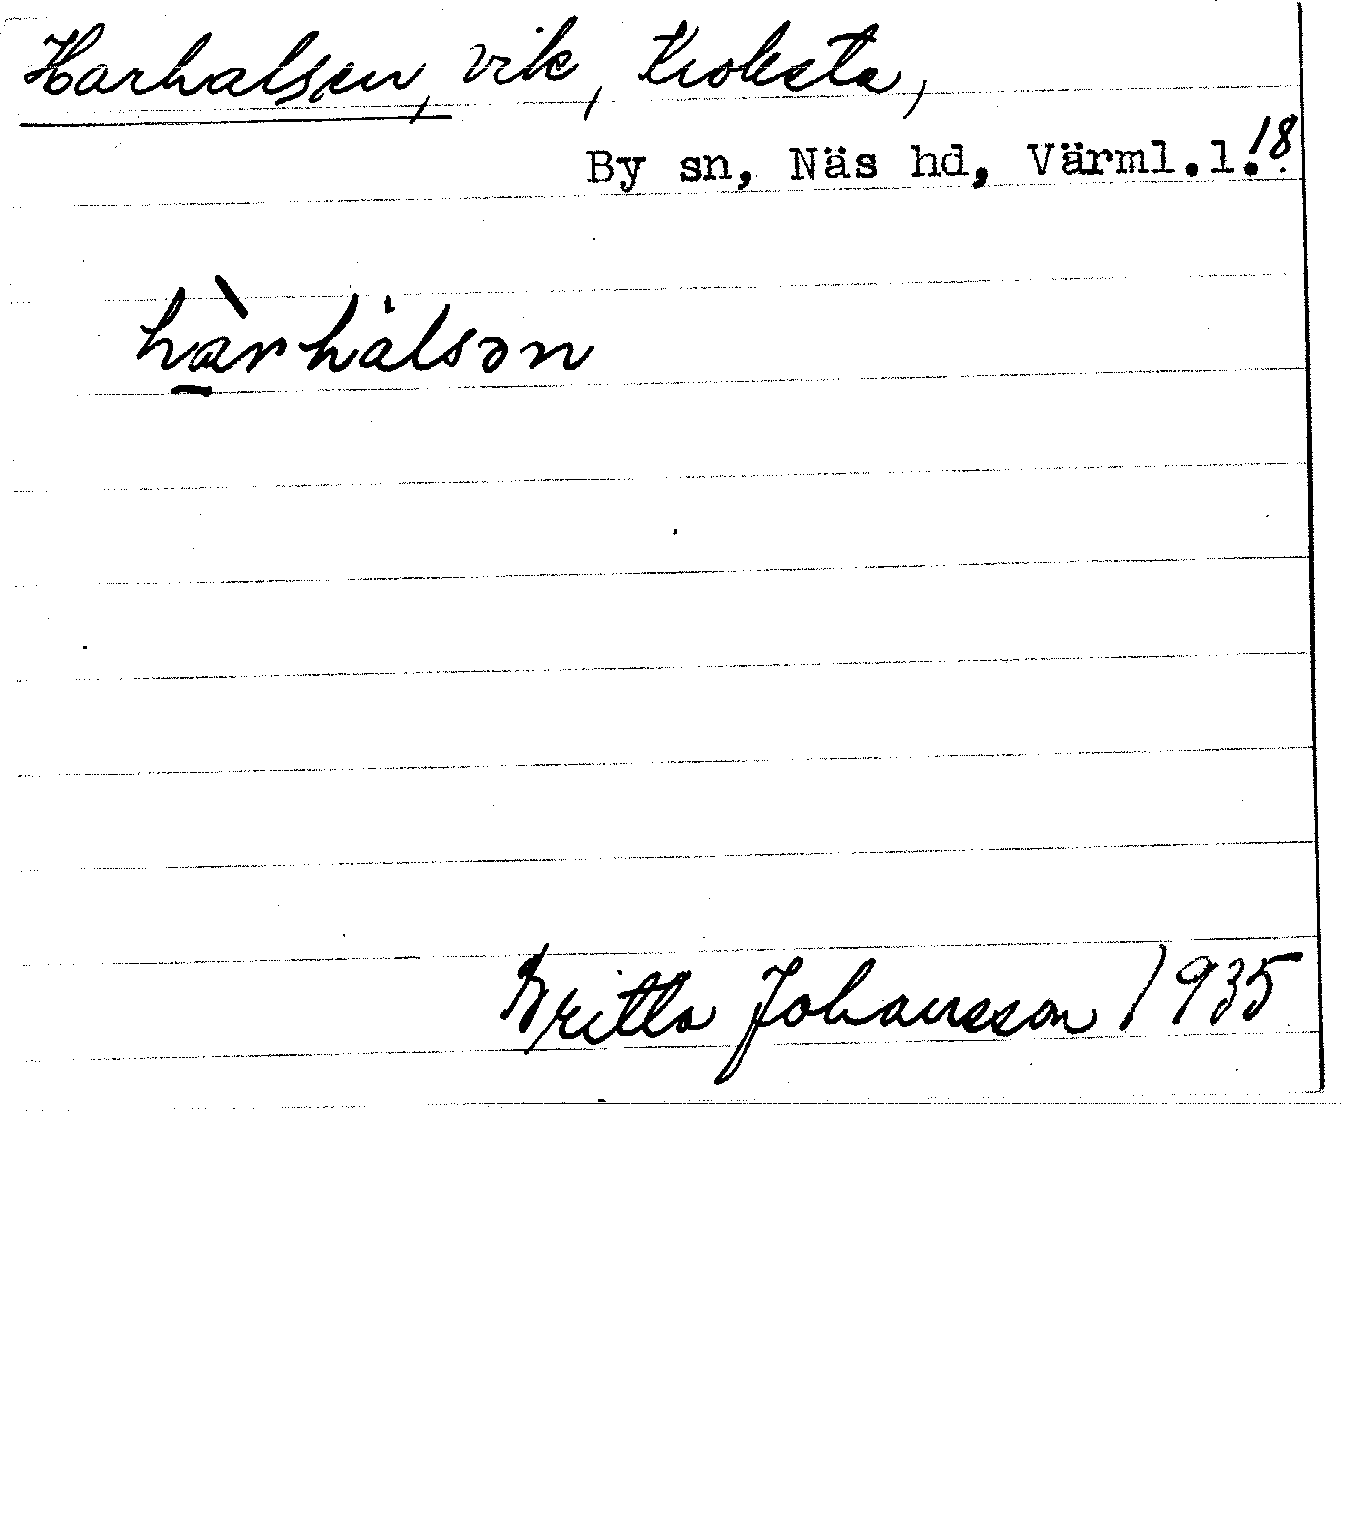 Harhalsen, vik, Kroksta,
By sn, Näs hd, Värml.l. 18
hàrhálsən
Britta Johansson 1935